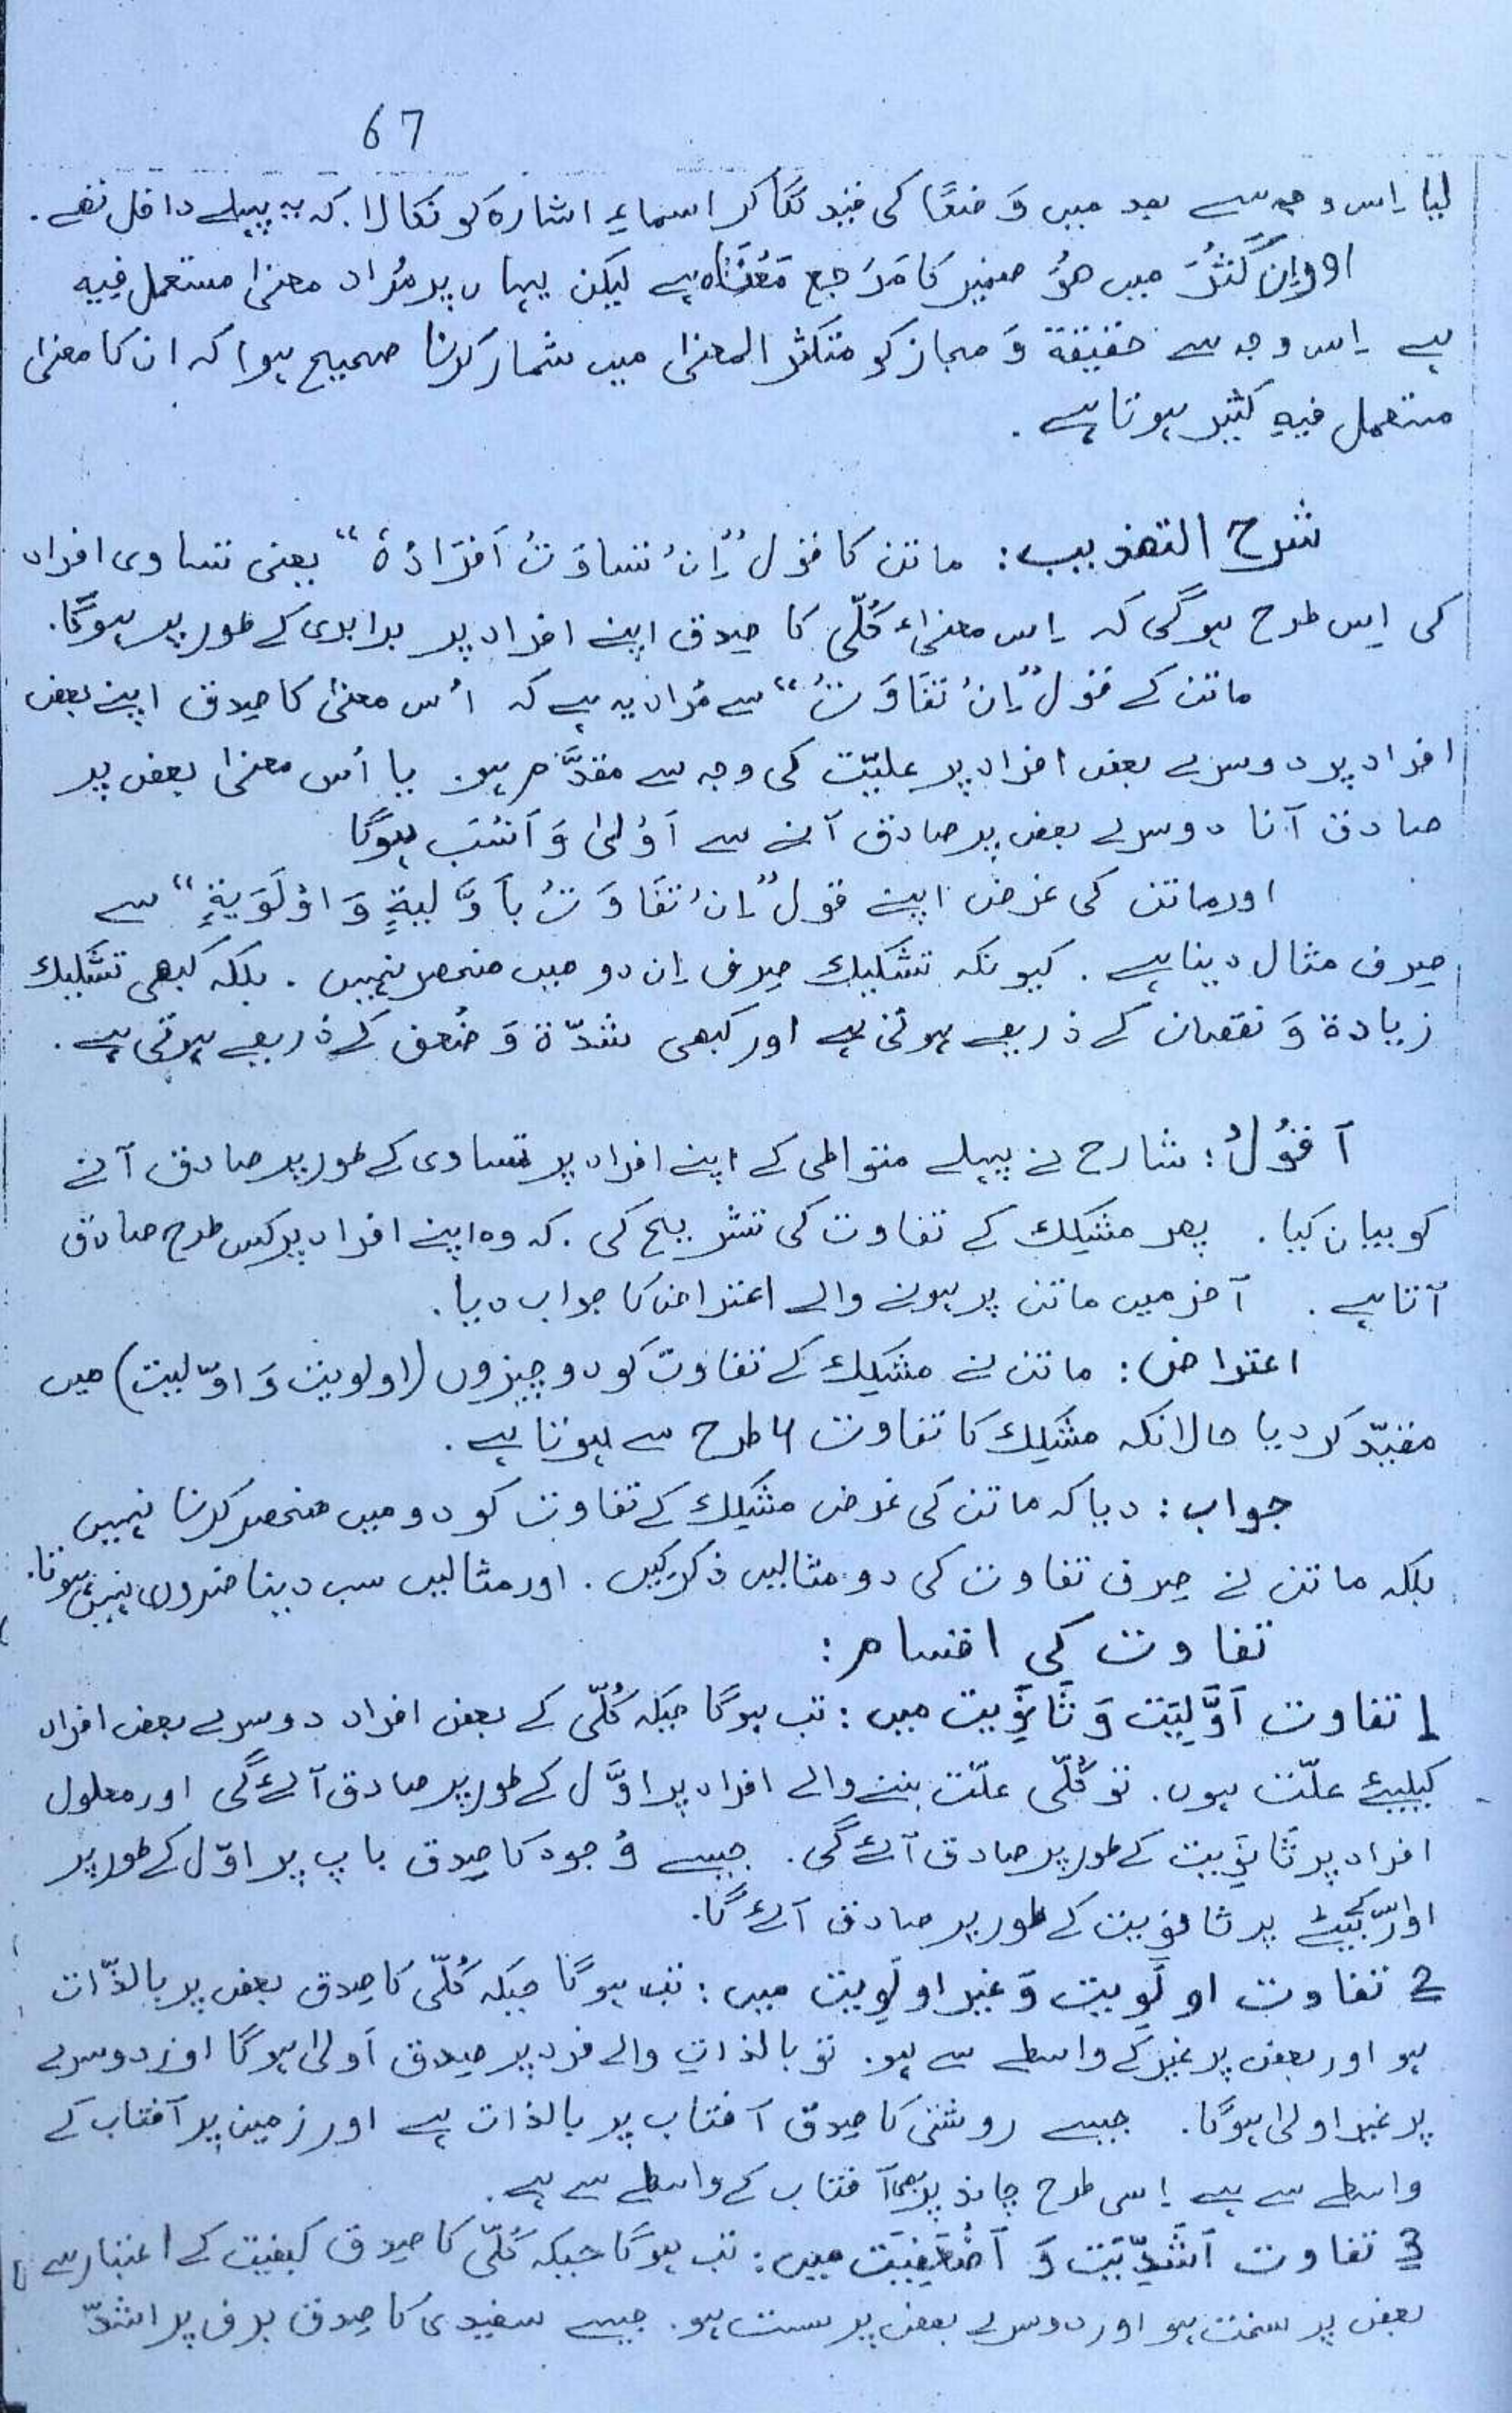 67
لیا۔ اِس وجہ سے بعد میں وَضعًا کی قید لگا کر اسماءِ اشارہ کو نکالا۔ کہ یہ پہلے داخل تھے۔
اور اِن کَثُرَ میں ھُوَ ضمیر کا مَرْجع مَعْنَاہ ہے لیکن یہاں پر مُراد معنیٰ مستعمل فِیہِ
ہے اِس وجہ سے حقیقۃ وَ مجاز کو متکثر المعنیٰ میں شمار کرنا صحیح ہوا کہ ان کا معنیٰ
مستعمل فیہِ کثیر ہوتا ہے۔
شرح التھذیب: ماتن کا قول ”اِنْ تساوَتْ اَفْرَادُہٗ“ یعنی تساوی افراد
کی اِس طرح ہوگی کہ اِس معنیٰءِ کُلّی کا صِدق اپنے افراد پر برابری کے طور پر ہوگا۔
ماتن کے قول ”اِنْ تَفَاوَتَتْ“ سے مُراد یہ ہے کہ اُس معنیٰ کا صِدق اپنے بعض
افراد پر دوسرے بعض افراد پر علیّت کی وجہ سے مقدَّم ہو۔ یا اُس معنیٰ بعض پر
صادق آنا دوسرے بعض پر صادق آنے سے اَوْلیٰ وَ اَنْسَب ہوگا
اور ماتن کی غرض اپنے قول ”اِنْ تَفَاوَتَتْ بِاَوَّلیۃٍ وَ اوْلَوِیۃٍ“ سے
صِرف مثال دینا ہے۔ کیونکہ تشکیک صِرف اِن دو میں منحصر نہیں۔ بلکہ کبھی تشکیک
زیادۃ وَ نقصان کے ذریعے ہوتی ہے اور کبھی شدّۃ وَ ضُعف کے ذریعے ہوتی ہے۔
اَقُوْلُ: شارح نے پہلے متواطی کے اپنے افراد پر تساوی کے طور پر صادق آنے
کو بیان کیا۔ پھر مشکِک کے تفاوت کی تشریح کی۔ کہ وہ اپنے افراد پر کس طرح صادق
آتا ہے۔ آخر میں ماتن پر ہونے والے اعتراض کا جواب دیا۔
اعتراض: ماتن نے مشکِک کے تفاوت کو دو چیزوں (اولویت وَ اوّلیت) میں
مقیّد کر دیا حالانکہ مشکِک کا تفاوت ۴ طرح سے ہوتا ہے۔
جواب: دیا کہ ماتن کی غرض مشکِک کے تفاوت کو دو میں منحصر کرنا نہیں
بلکہ ماتن نے صِرف تفاوت کی دو مثالیں ذکر کیں۔ اور مثالیں سب دینا ضروری نہیں ہوتا۔
تفاوت کی اقسام:
1 تفاوت اَوَّلِیَّت وَ ثَانَوِیت میں: تب ہوگا جبکہ کُلّی کے بعض افراد دوسرے بعض افراد
کیلیئے علّت ہوں۔ تو کُلّی علّت بننے والے افراد پر اوَّل کے طور پر صادق آئے گی اور معلول
افراد پر ثَانَوِیت کے طور پر صادق آئے گی۔ جیسے وُجود کا صِدق باپ پر اوّل کے طور پر
اور اس کے بیٹے پر ثانویت کے طور پر صادق آئے گا۔
2 تفاوت اولَوِیت وَ غیر اولَوِیت میں: تب ہوگا جبکہ کُلّی کا صِدق بعض پر بالذّات
ہو اور بعض پر غیر کے واسطے سے ہو۔ تو بالذات والے فرد پر صِدق اَولیٰ ہوگا اور دوسرے
پر غیر اولیٰ ہوگا۔ جیسے روشنی کا صِدق آفتاب پر بالذات ہے اور زمین پر آفتاب کے
واسطے سے ہے اِسی طرح چاند پر بھی آفتاب کے واسطے سے ہے۔
3 تفاوت اَشَدِّیَّت وَ اَضْعَفِیَت میں: تب ہوگا جبکہ کُلّی کا صِدق کیفیت کے اعتبار سے
بعض پر سخت ہو اور دوسرے بعض پر سست ہو۔ جیسے سفیدی کا صِدق برف پر اشدّ